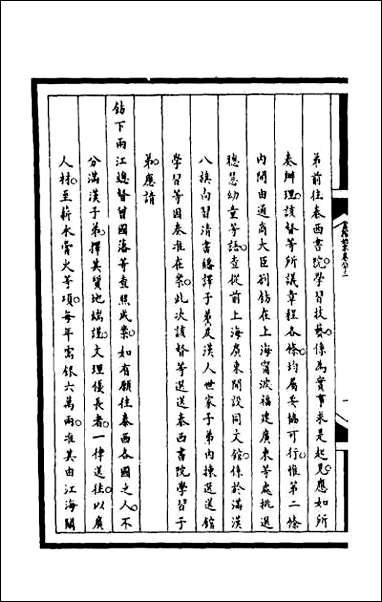 弟前往泰西書院學習技藝係為實事求是起見應如所
奏辦理該督等所議章程各條均屬妥協可行惟第二條
內開由通商大臣劉飭在上海甯波福建廣東等處挑選
聰慧幼童等語查從前上海廣東開設同文館係於滿漢
八旗向習清書繙譯子弟及漢人世家子弟內揀選送館
學習等因奏准在案此次該督等選送泰西書院學習子
弟應請
飭下兩江總督曾國藩等查照成案如有願往泰西各國之人不
分滿漢子弟擇其質地端謹文理優長者一律送往以廣
人材至薪水膏火等項每年需銀六萬兩准其由江海關